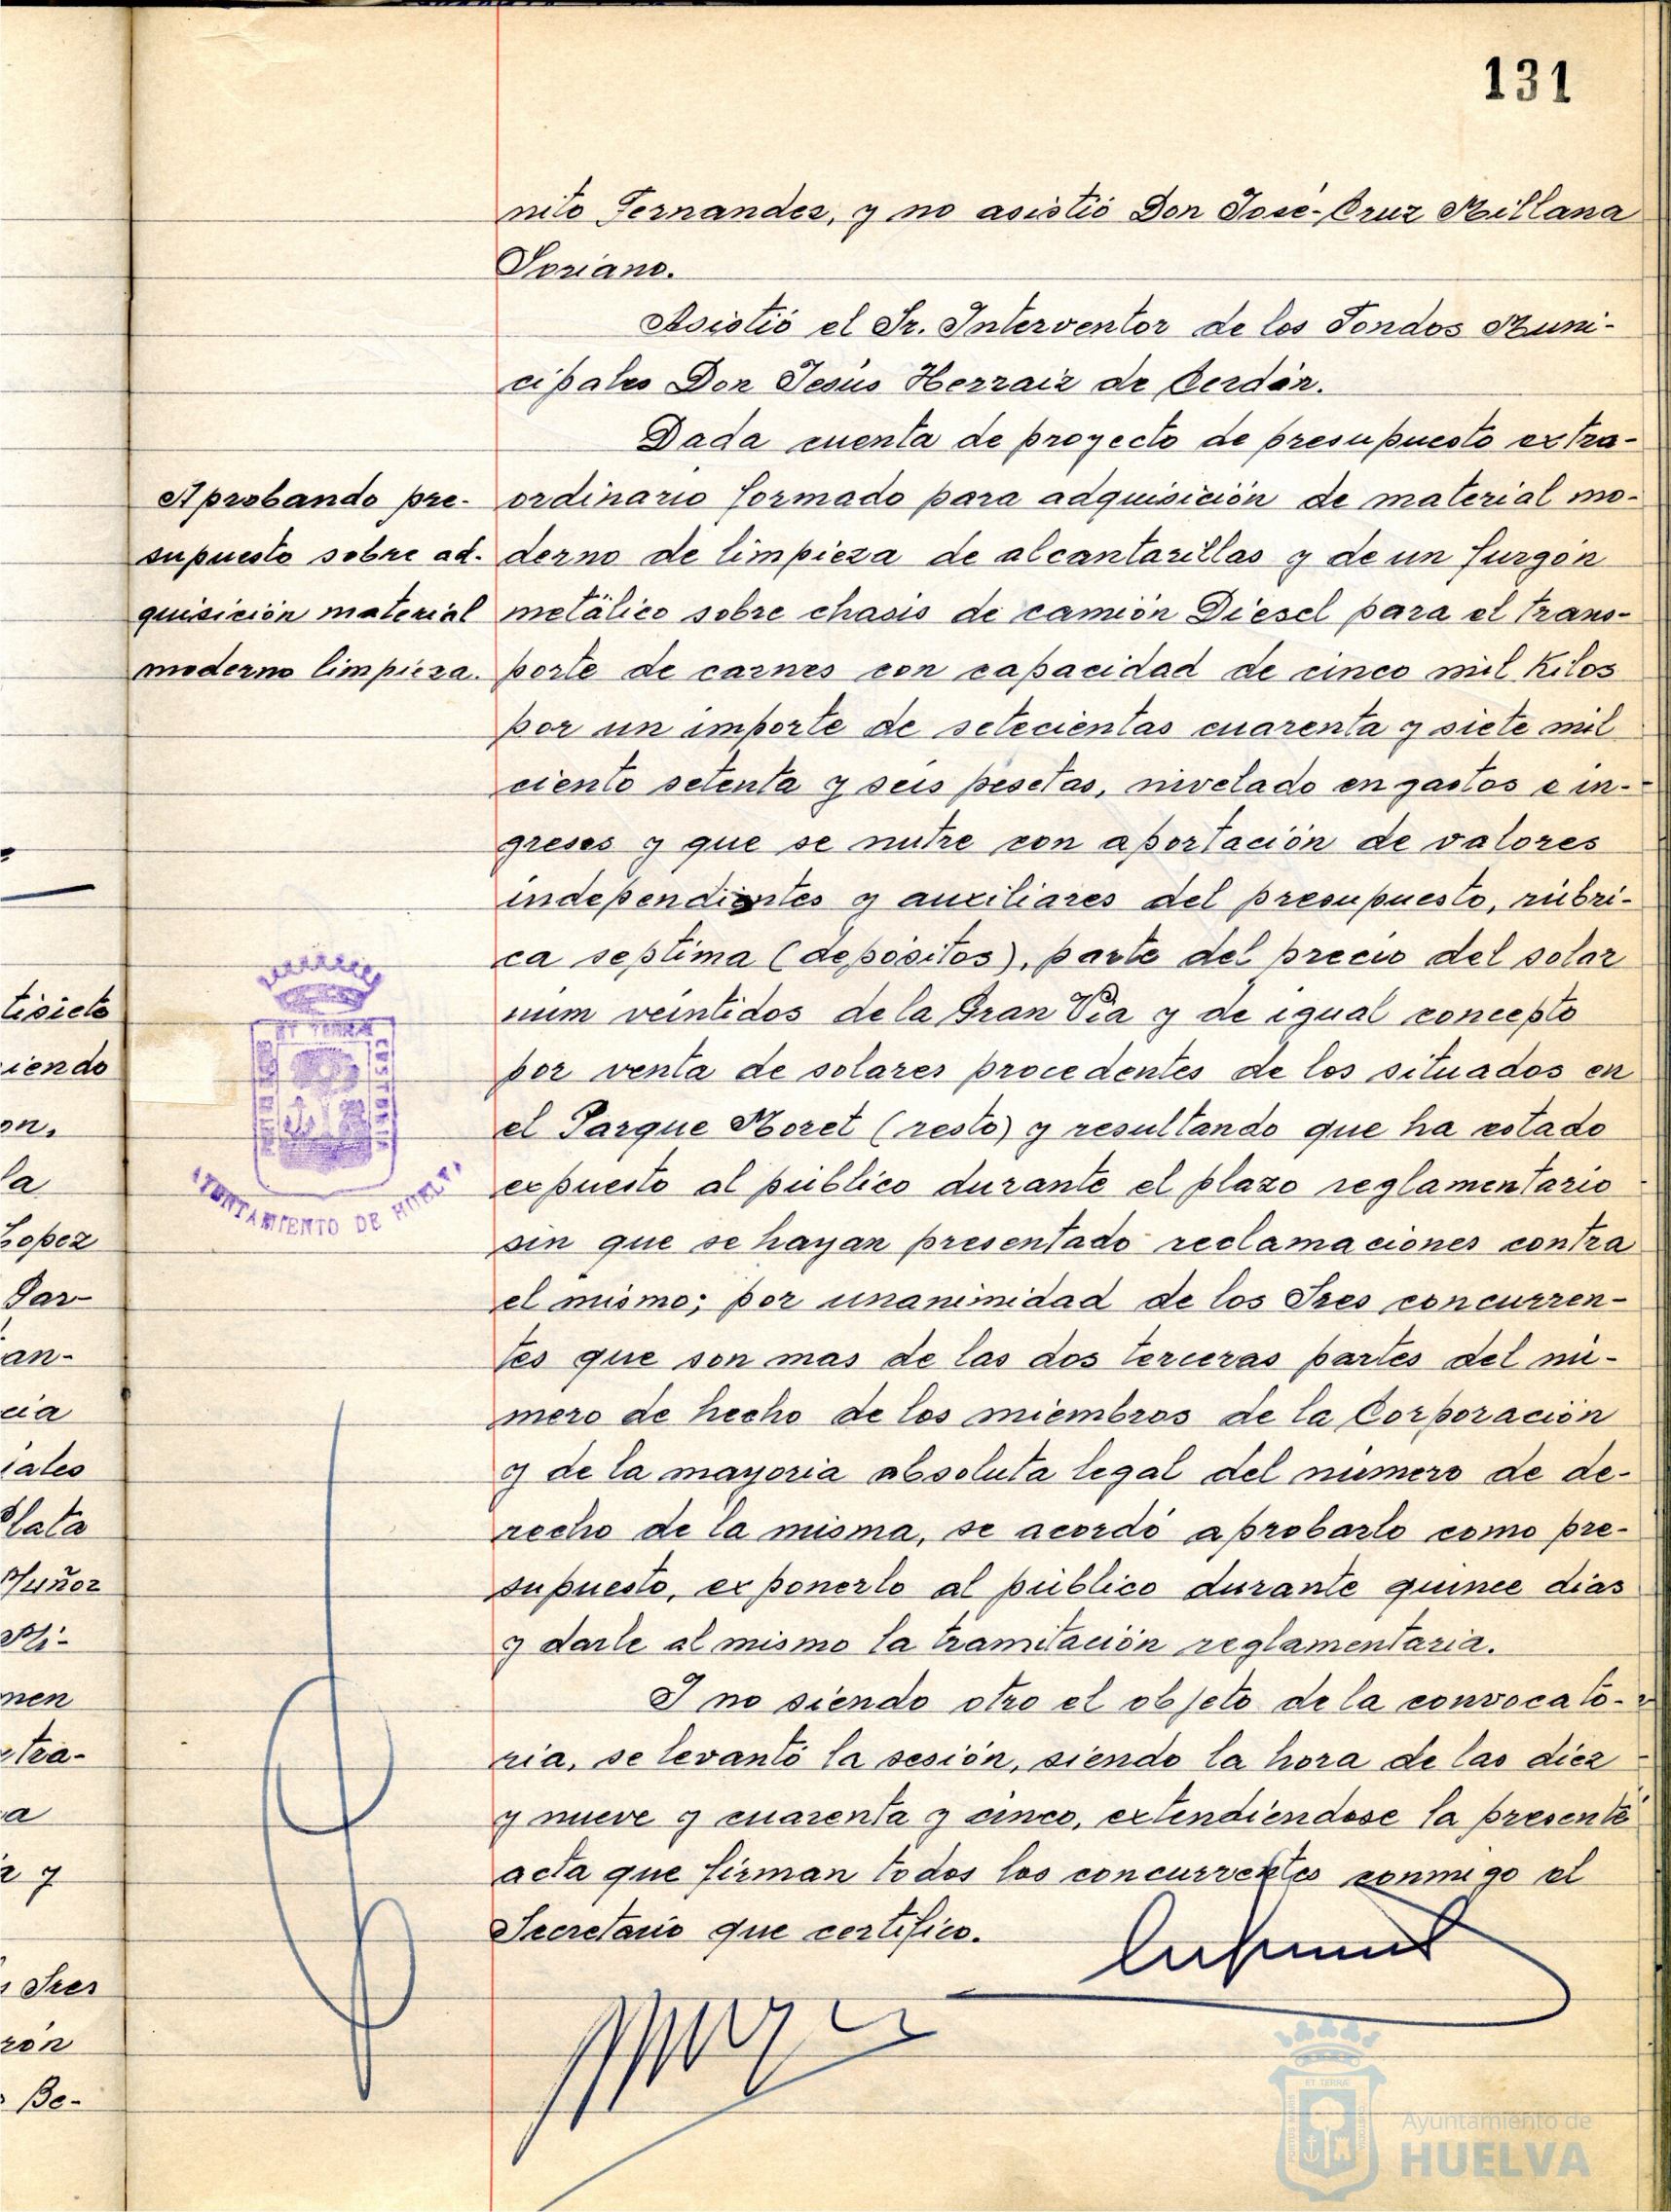 131
nito Fernandez, y no asistió Don José-Cruz Millana
Soriano.
Asistió el Sr. Interventor de los Fondos Muni-
cipales Don Jesús Herraiz de Cerdán.
Dada cuenta de proyecto de presupuesto extra-
Aprobando pre-
supuesto sobre ad-
quisición material
moderno limpieza.
ordinario formado para adquisición de material mo-
derno de limpieza de alcantarillas y de un furgón
metálico sobre chasis de camión Diesel para el trans-
porte de carnes con capacidad de cinco mil kilos
por un importe de setecientas cuarenta y siete mil
ciento setenta y seis pesetas, nivelado en gastos e in-
gresos y que se nutre con aportación de valores
independientes y auxiliares del presupuesto, rúbri-
ca septima (depósitos), parte del precio del solar
núm veintidos de la Gran Vía y de igual concepto
por venta de solares procedentes de los situados en
el Parque Moret (resto) y resultando que ha estado
expuesto al público durante el plazo reglamentario
sin que se hayan presentado reclamaciones contra
el mismo; por unanimidad de los Sres concurren-
tes que son mas de las dos terceras partes del nú-
mero de hecho de los miembros de la Corporación
y de la mayoria absoluta legal del número de de-
recho de la misma, se acordó aprobarlo como pre-
supuesto, exponerlo al público durante quince dias
y darle al mismo la tramitación reglamentaria.
Y no siendo otro el objeto de la convocato-
ria, se levantó la sesión, siendo la hora de las diez
y nueve y cuarenta y cinco, extendiendose la presente
acta que firman todos los concurrentes conmigo el
Secretario que certifico.
tisiete
iendo
on.
la
Lopez
Gar-
an-
cia
iales
Plata
Muñoz
Mi-
men
xtra-
a
z y
s Sres
rón
Be-
ET TERRAE CUSTODIA
AYUNTAMIENTO DE HUELVA
Ayuntamiento de
HUELVA